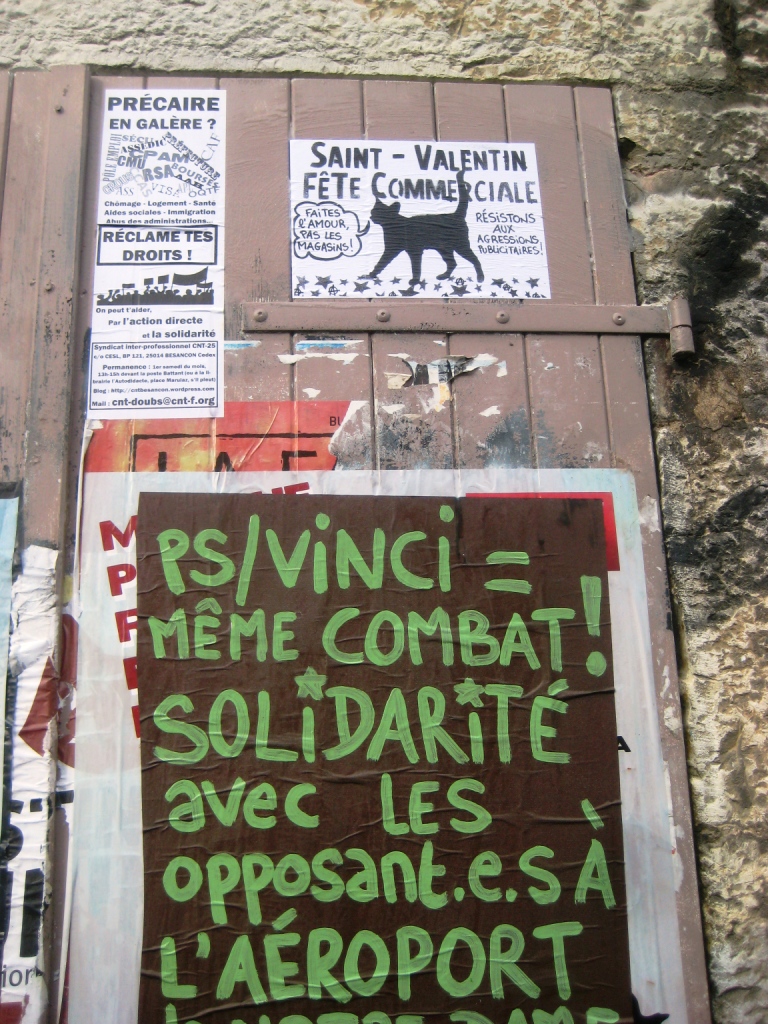 PRÉCAIRE
EN GALÈRE ?
SÉCU
ASSEDIC
PÔLE EMPLOI
CAF
PAM
CMU
RSA
BOURSE
VISA
Chômage - Logement - Santé
Aides sociales - Immigration
Abus des administrations...
RÉCLAME TES
DROITS !
On peut t'aider,
Par l'action directe
et la solidarité
Syndicat inter-professionnel CNT-25
c/o CESL, BP 121, 25014 BESANCON Cedex
Permanence : 1er samedi du mois,
13h-15h devant la poste Battant (ou à la li-
brairie l'Autodidante, place Marulaz, s'il pleut)
Blog : http://cntbesancon.wordpress.com
Mail : cnt-doubs@cnt-f.org
SAINT - VALENTIN
FÊTE COMMERCIALE
FAITES
L'AMOUR,
PAS LES
MAGASINS !
RÉSISTONS
AUX
AGRESSIONS
PUBLICITAIRES !
PS/ViNCi =
MÊME COMBAT !
SOLiDARiTÉ
avec LES
opposant.e.s À
L'AÉROPORT
NOTRE DAME